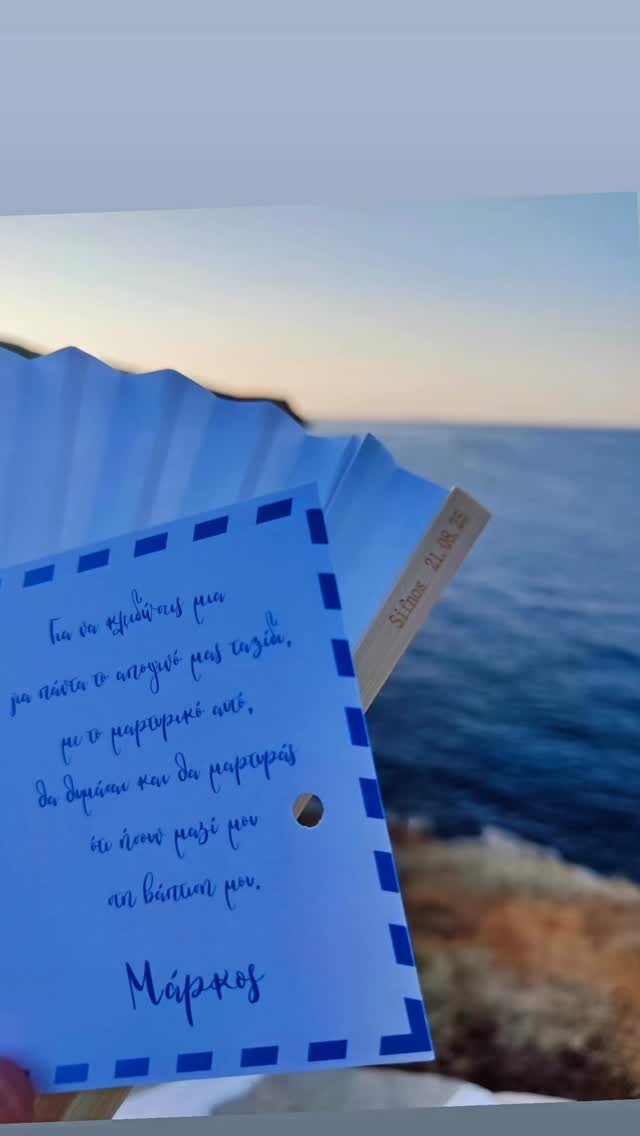 Για να κλειδώσεις μια
για πάντα το αποψινό μας ταξίδι,
με το μαρτυρικό αυτό,
θα θυμάσαι και θα μαρτυράς
ότι ήσουν μαζί μου
στη βάπτιση μου.
Μάρκος
Sifnos 21.08.25